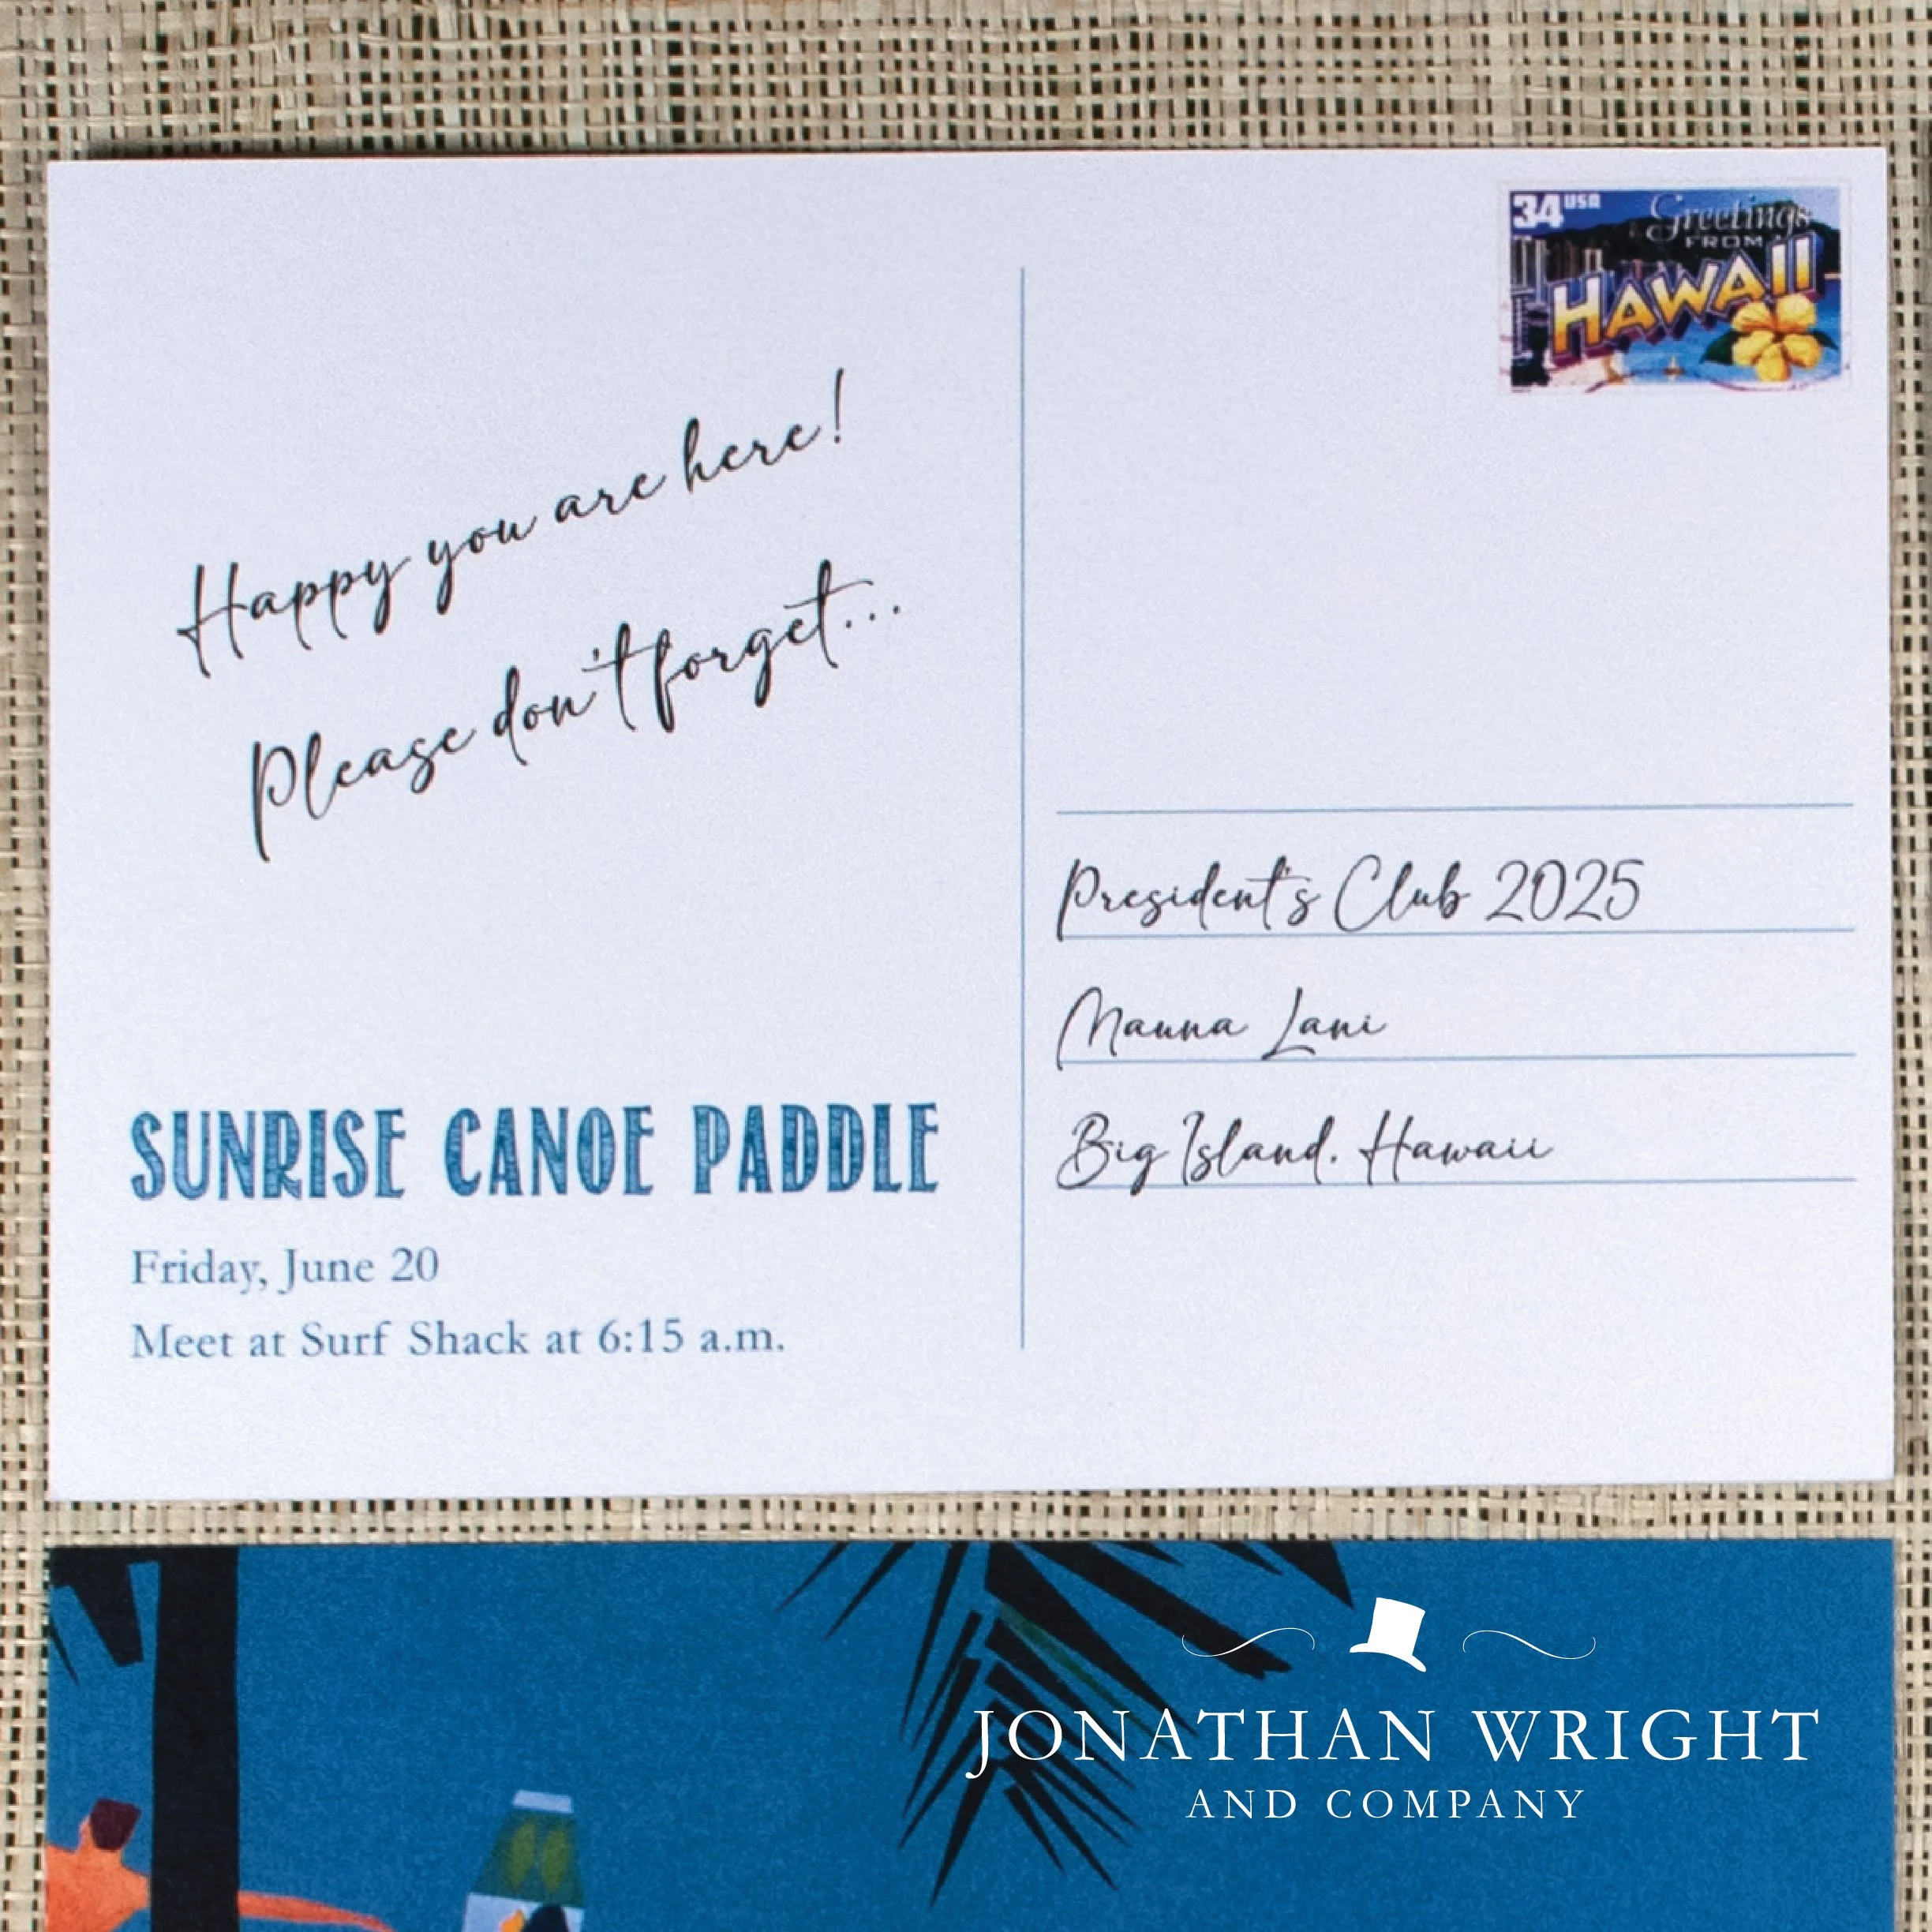 34 USA
Greetings
FROM
HAWAII
Happy you are here!
Please don't forget...
SUNRISE CANOE PADDLE
Friday, June 20
Meet at Surf Shack at 6:15 a.m.
President's Club 2025
Mauna Lani
Big Island, Hawaii
JONATHAN WRIGHT
AND COMPANY